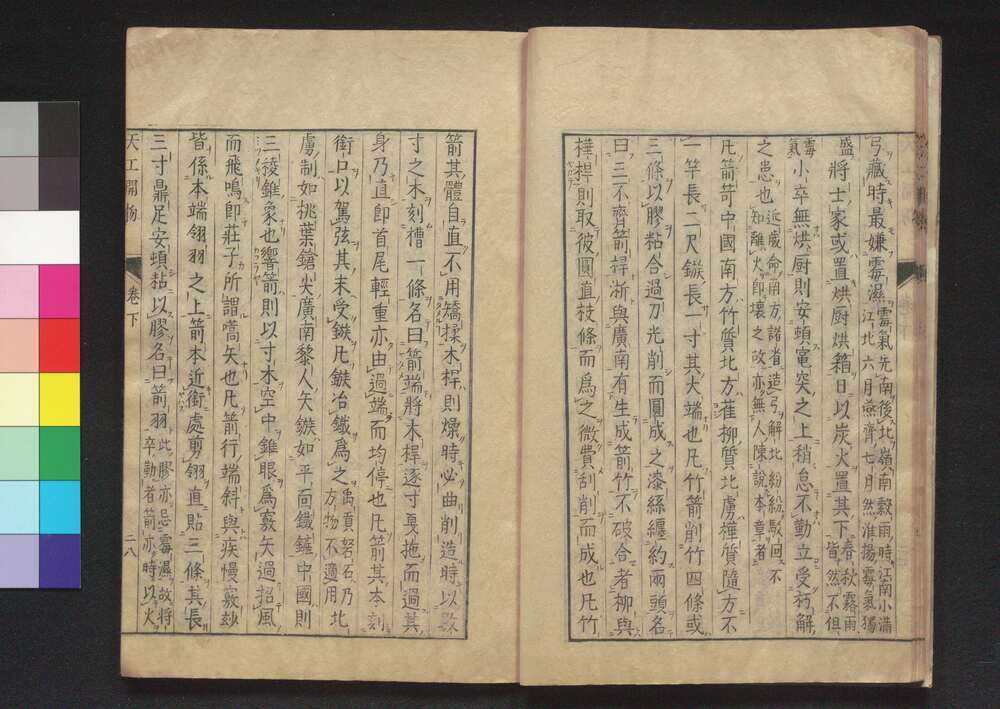 弓藏時最嫌霉濕霉氣先南後北嶺南穀雨時江南小滿
江北六月燕齊七月然淮揚霉氣獨
盛將士家或置烘厨烘箱日以炭火置其下春秋霧雨
皆然不但
霉氣小卒無烘厨則安頓竃突之上稍怠不勤立受朽解
之患也近歲命南方諸省造弓解北紛紛駁回不
知離火即壞之故亦無人陳說本章者
凡箭笴中國南方竹質北方萑柳質北虜樺質隨方不
一竿長二尺鏃長一寸其大端也凡竹箭削竹四條或
三條以膠粘合過刀光削而圓成之漆絲纏約兩頭名
曰三不齊箭捍浙與廣南有生成箭竹不破合者柳與
樺捍則取彼圓直枝條而爲之微費刮削而成也凡竹
箭其體自直不用矯揉木捍則燥時必曲削造時以數
寸之木刻槽一條名曰箭端將木捍逐寸戞拖而過其
身乃直即首尾輕重亦由過端而均停也凡箭其本刻
銜口以駕弦其末受鏃凡鏃冶鐵爲之禹貢砮石乃
方物不適用北
虜制如挑葉鎗尖廣南黎人矢鏃如平面鐵鏟中國則
三稜錐象也響箭則以寸木空中錐眼爲竅矢過招風
而飛鳴即莊子所謂嚆矢也凡箭行端斜與疾慢竅玅
皆係本端翎羽之上箭本近銜處剪翎直貼三條其長
三寸鼎足安頓黏以膠名曰箭羽此膠亦忌霉濕故將
卒勤者箭亦時以火
天工開物
卷下
二八